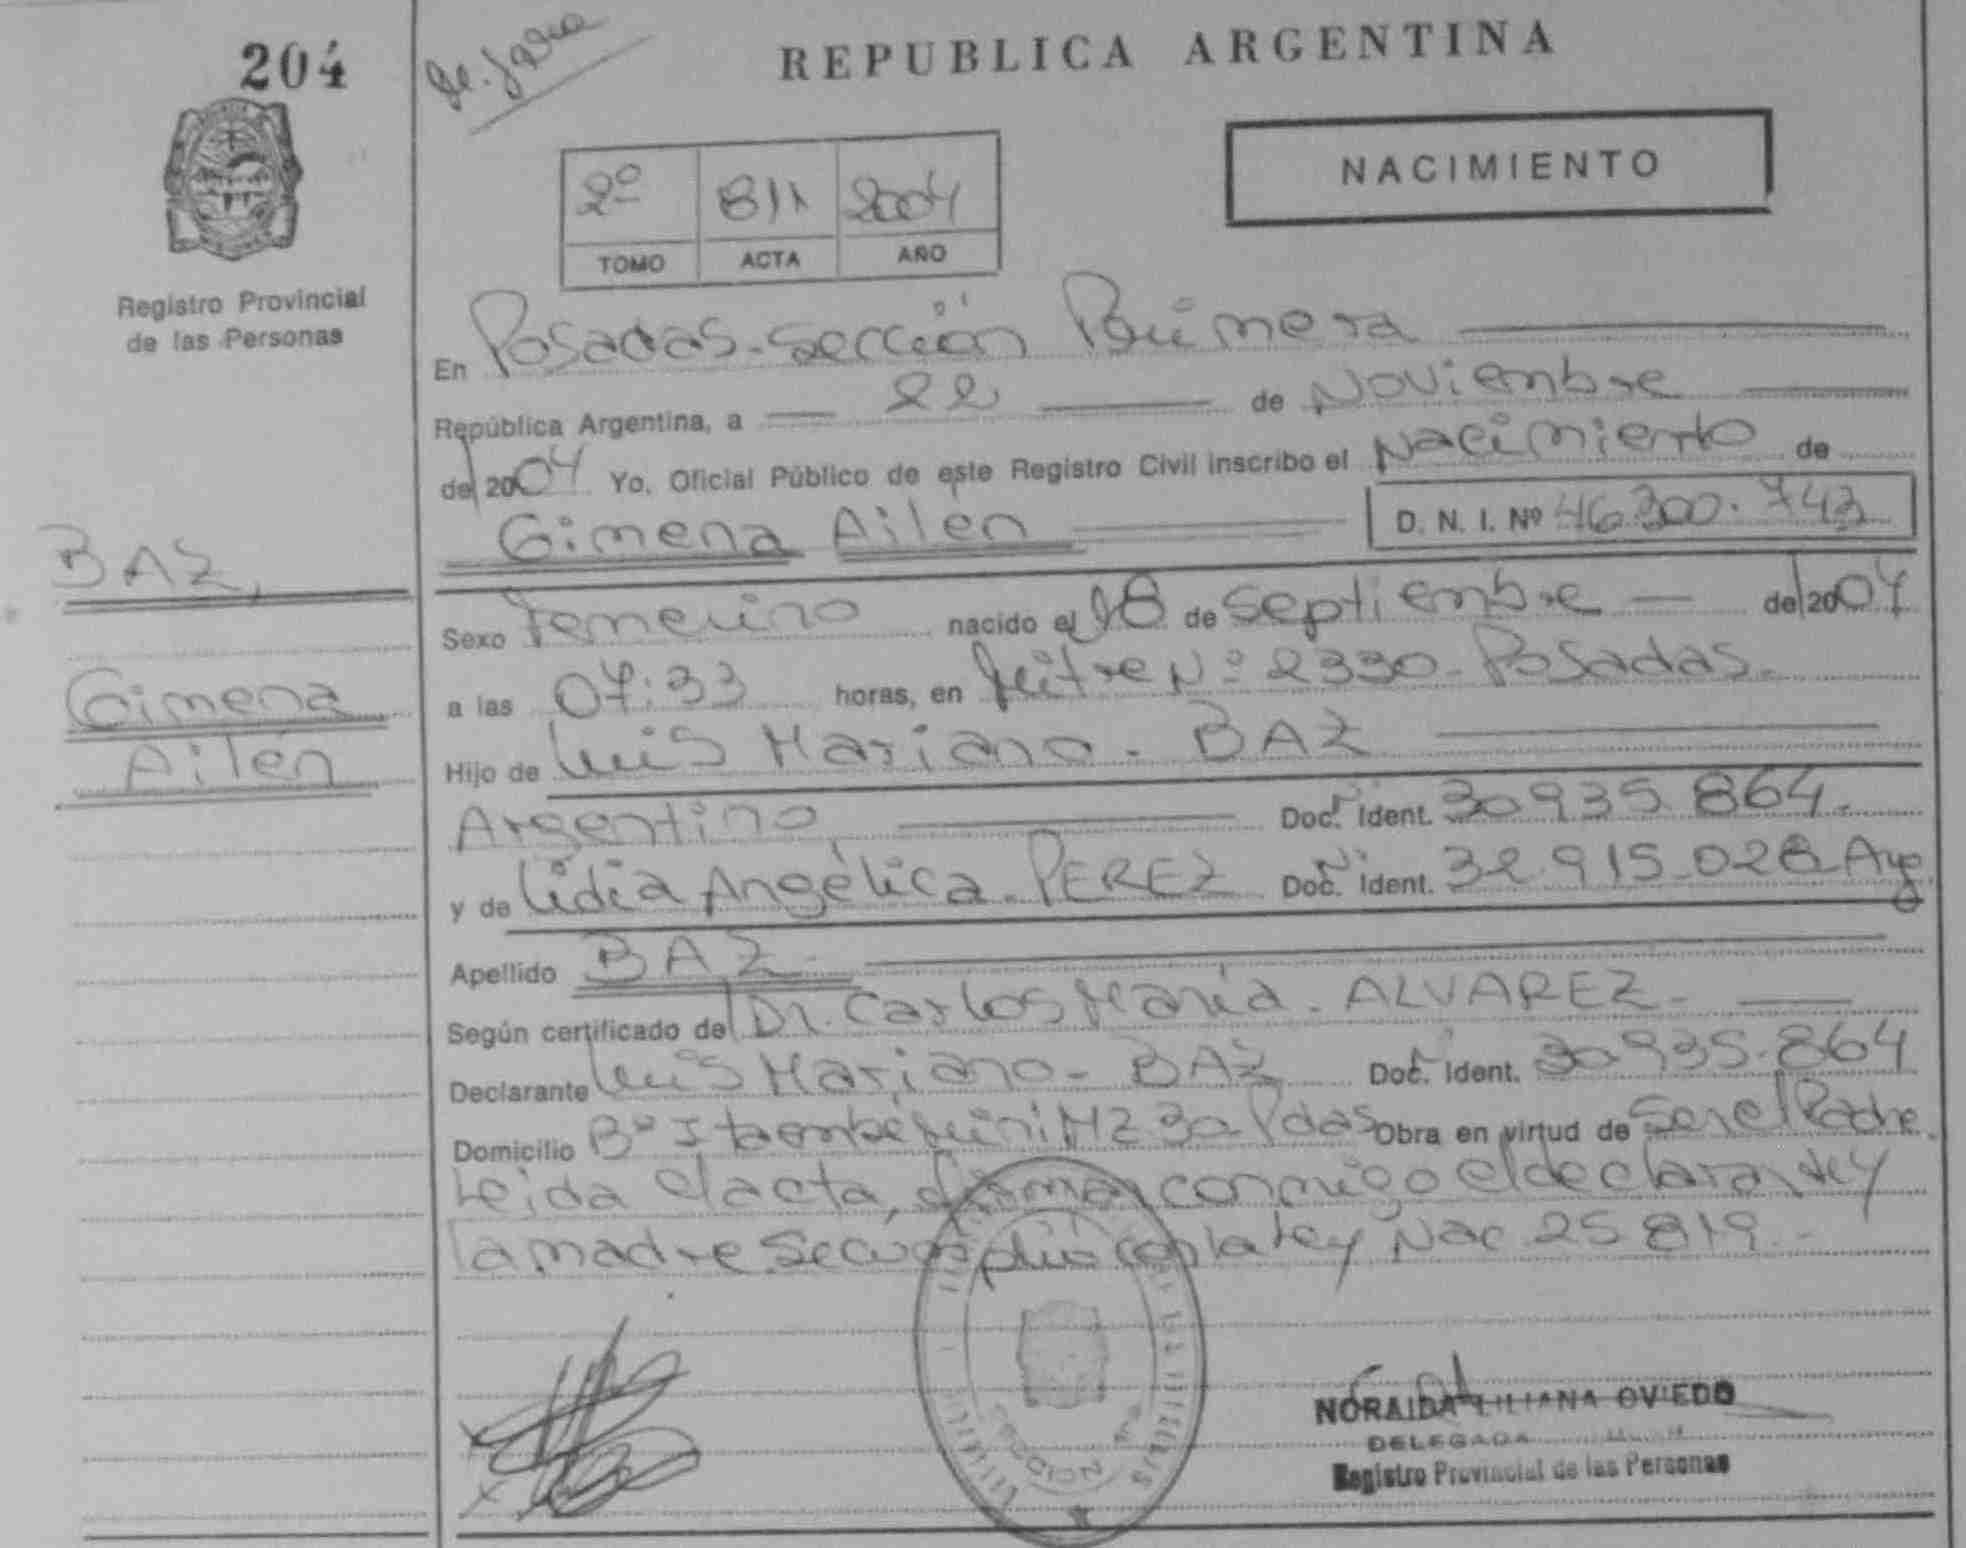 204
REPUBLICA ARGENTINA
NACIMIENTO
2º 811 2004
TOMO ACTA AÑO
Registro Provincial
de las Personas
En Posadas - Sección Primera
República Argentina, a 22 de Noviembre
de 2004 Yo. Oficial Público de este Registro Civil inscribo el Nacimiento de
Gimena Ailén D. N. I. Nº 46.300.743
BAZ,
Gimena
Ailén
Sexo Femenino nacido el 18 de Septiembre de 2004
a las 07:33 horas, en Mitre Nº 2330 - Posadas.
Hijo de Luis Mariano - BAZ
Argentino Doc. Nº Ident. 30.935.864.
y de Lidia Angélica - PEREZ Doc. Nº Ident. 32.915.028 Arg.
Apellido BAZ
Según certificado de Dr. Carlos María - ALVAREZ -
Declarante Luis Mariano - BAZ Doc. Nº Ident. 30.935.864
Domicilio Bº Itaembé Miní Mz 30 Pdas Obra en virtud de Ser el Padre.
Leida el acta, firman conmigo el declarante y
la madre. Se cumplió con la Ley Nac 25.819.-
NORAIDA LILIANA OVIEDO
DELEGADA
Registro Provincial de las Personas